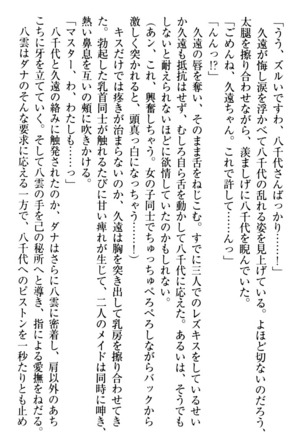 「うう、ズルいです、八千代さんばっかり……！」
久遠が悔し涙を浮かべて八千代の乱れる姿を見上げている。よほど切ないのだろう、
太腿を擦り合わせながら、羨ましげに八千代を睨んでいた。
「ごめんね、久遠ちゃん。これで許して……んっ」
「んっ!?」
久遠の唇を奪い、そのまま舌をねじこむ。すでに三人でのレズキスをしているせい
か久遠も抵抗はせず、むしろ自ら舌を動かして八千代に応えた。あるいは、そうでも
しないと耐えられないほどに欲情していたのかもしれない。
（あン、これ、興奮しちゃう。女の子同士でちゅっちゅぺろぺろしながらバックから
激しく突かれると、頭真っ白になっちゃう……！）
キスだけでは疼きが治まらないのか、久遠は胸を突き出して乳房を擦り合わせてき
た。勃起した乳首同士が触れるたびに甘い痺れが生じて、二人のメイドは同時に呻き、
熱い鼻息を互いの頬に吹きかける。
「マスター、わ、わたしも……っ」
八千代と久遠の絡みに触発されたのか、ダナはさらに八雲に密着し、肩以外のあち
こちに牙を立てていく。そして八雲の手を己の秘所へと導き、指による愛撫をねだる。
八雲はダナのそんな要求に応える一方で、八千代へのピストンを一秒たりとも止め